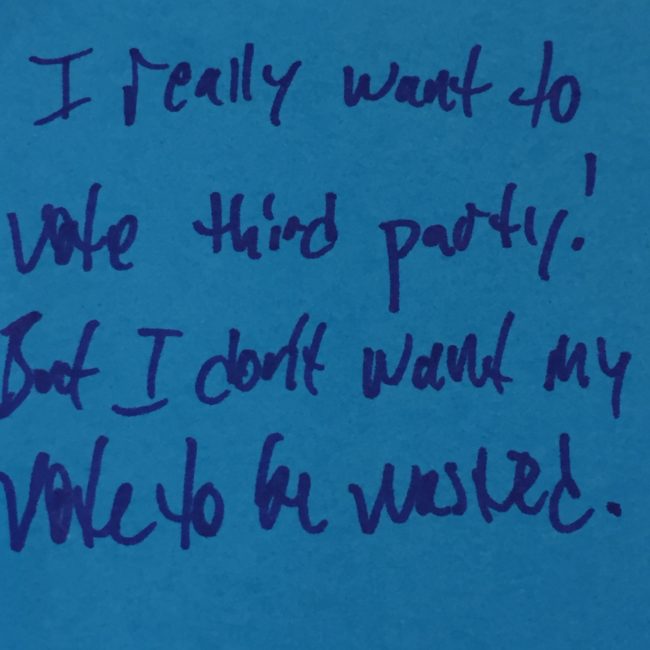 I really want to
vote third party!
But I don't want my
vote to be wasted.